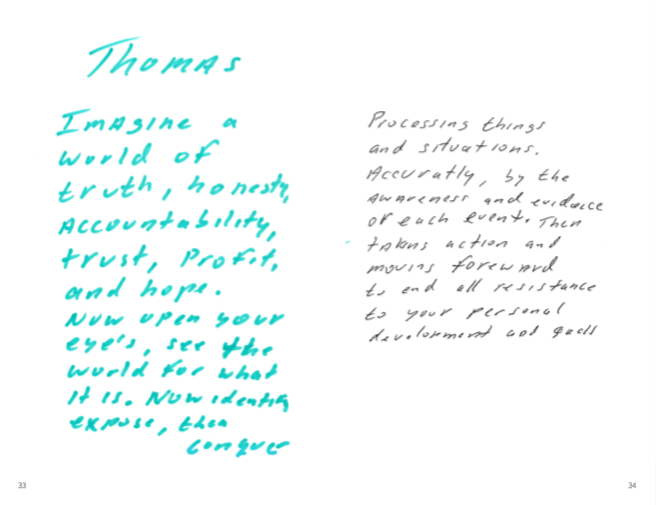 Thomas
Imagine a
world of
truth, honesty,
Accountability,
trust, Profit,
and hope.
Now open your
eye's, see the
world for what
it is. Now identify
expose, then
conquer
33
Processing things
and situations.
Accuratly, by the
awareness and evidence
of each event. Then
taking action and
moving foreward
to end all resistance
to your personal
development and goals
34